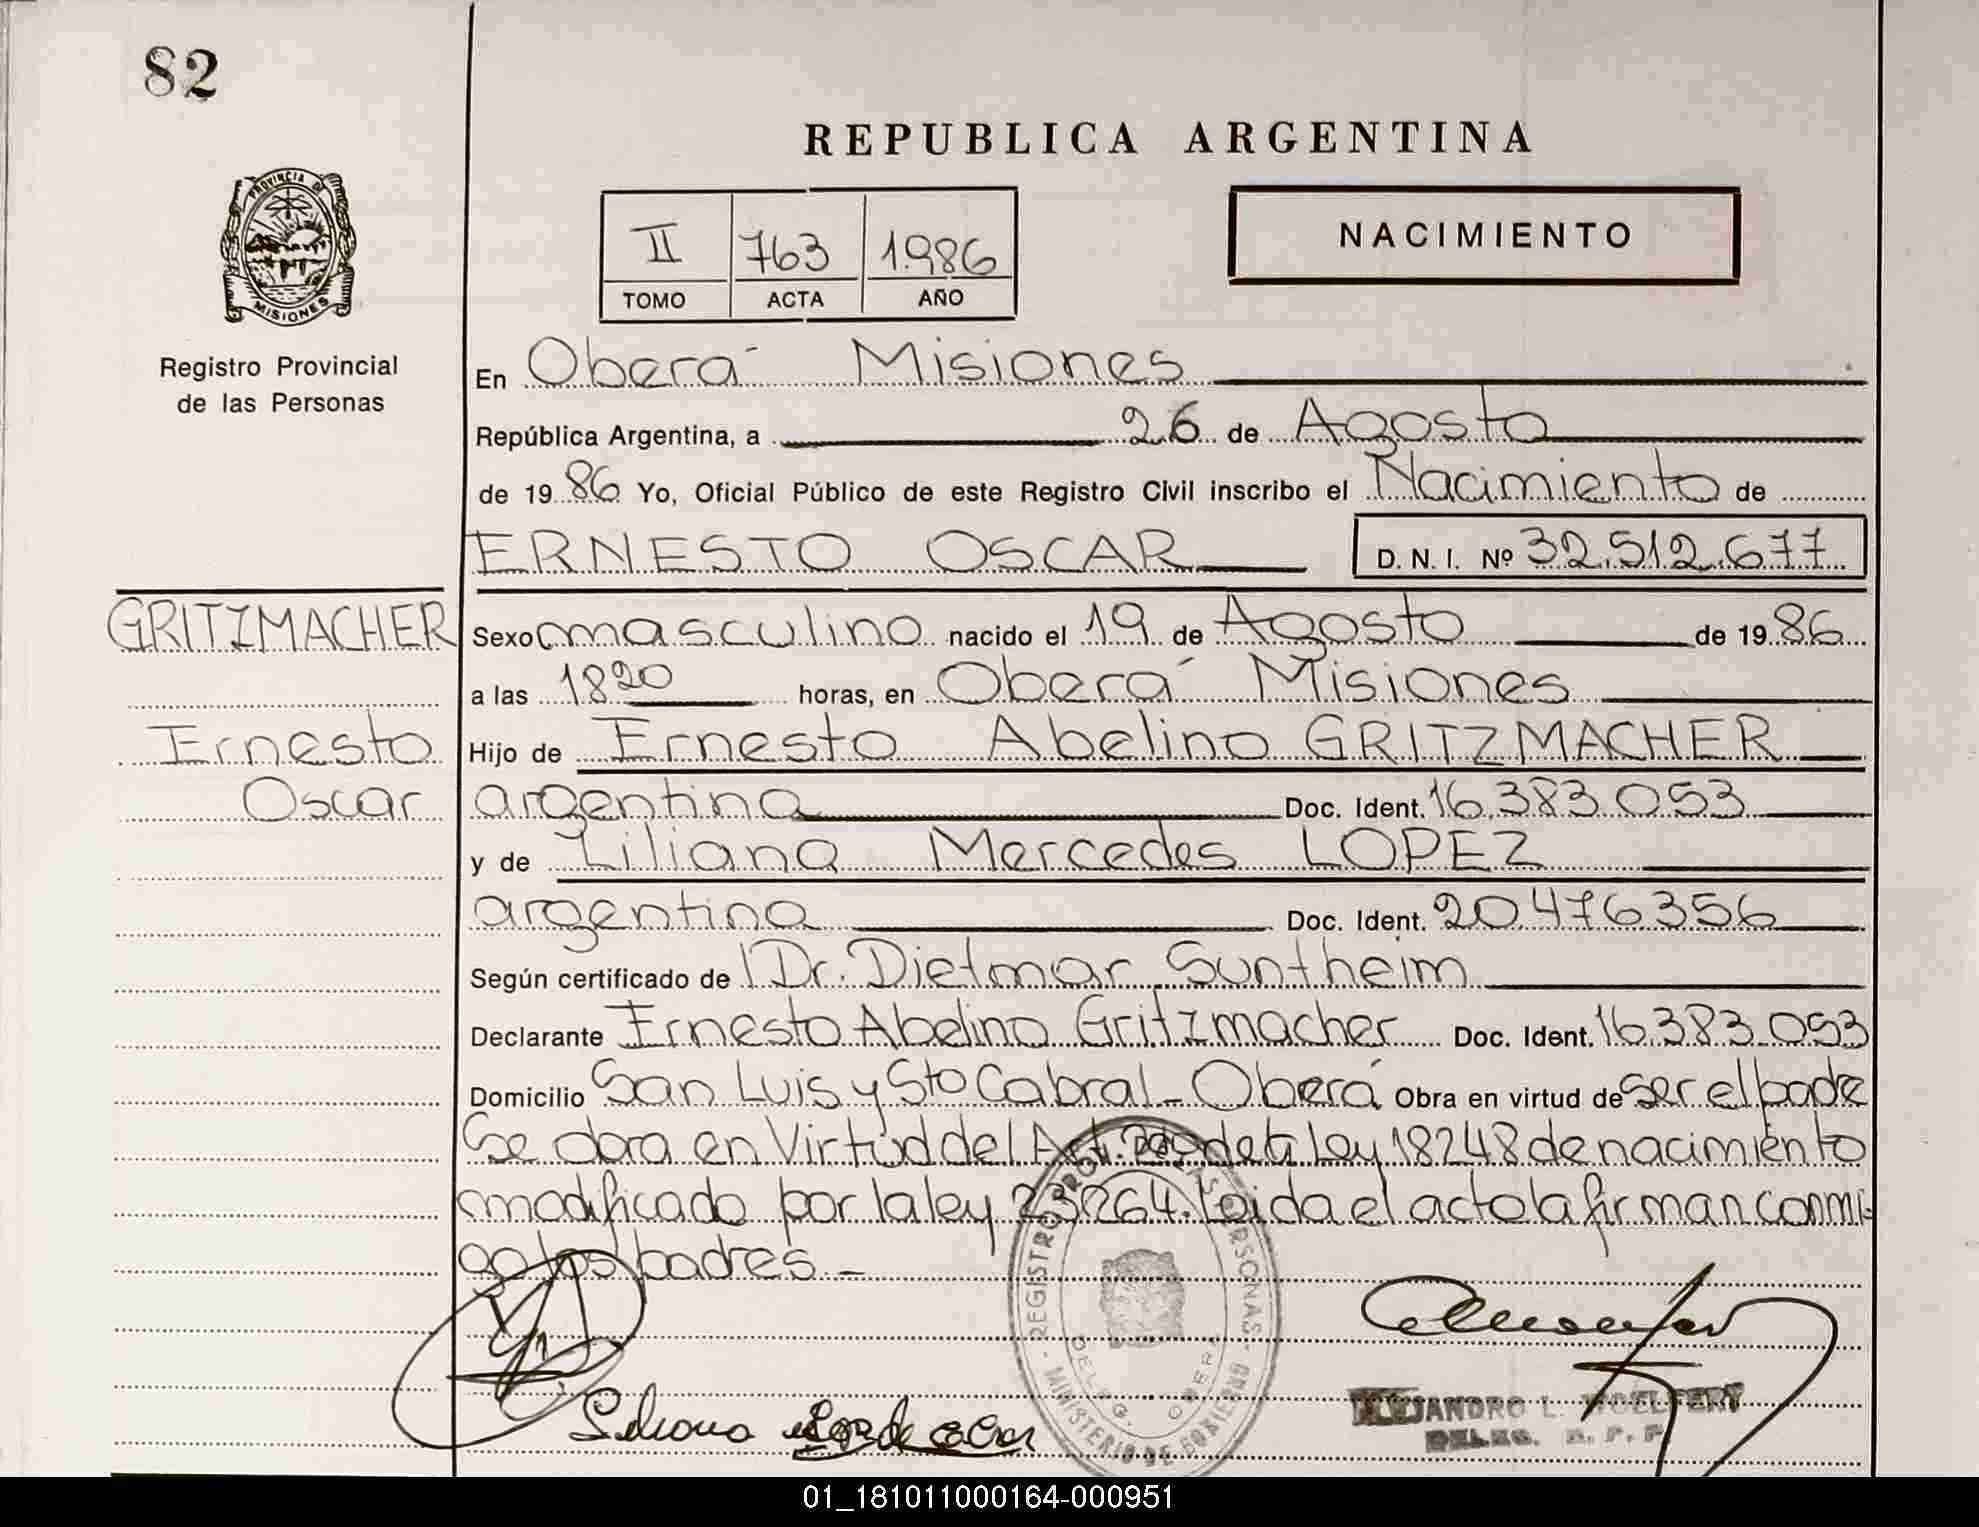 82
REPUBLICA ARGENTINA
PROVINCIA DE
MISIONES
II 763 1986
TOMO ACTA AÑO
NACIMIENTO
Registro Provincial
de las Personas
En Oberá Misiones
República Argentina, a 26 de Agosto
de 1986 Yo, Oficial Público de este Registro Civil inscribo el Nacimiento de
ERNESTO OSCAR D. N. I. Nº 32.512.677
GRITZMACHER Sexo masculino nacido el 19 de Agosto de 1986
a las 1820 horas, en Oberá Misiones
Ernesto Hijo de Ernesto Abelino GRITZMACHER
Oscar argentina Doc. Ident. 16.383.053
y de Liliana Mercedes LOPEZ
argentina Doc. Ident. 20.476.356
Según certificado de Dr. Dietmar Suntheim
Declarante Ernesto Abelino Gritzmacher Doc. Ident. 16.383.053
Domicilio San Luis y Sto Cabral - Oberá Obra en virtud de ser el padre
Se obra en Virtud del Art. de la ley 18248 de nacimiento
modificado por la ley 23264. Leida el acto la firman conmi-
go los padres.-
REGISTRO PERSONAS
DELEG. OBERA
MINISTERIO DE GOBIERNO
ALEJANDRO L. WOELFERT
DELEG. R. P. P.
01_181011000164-000951